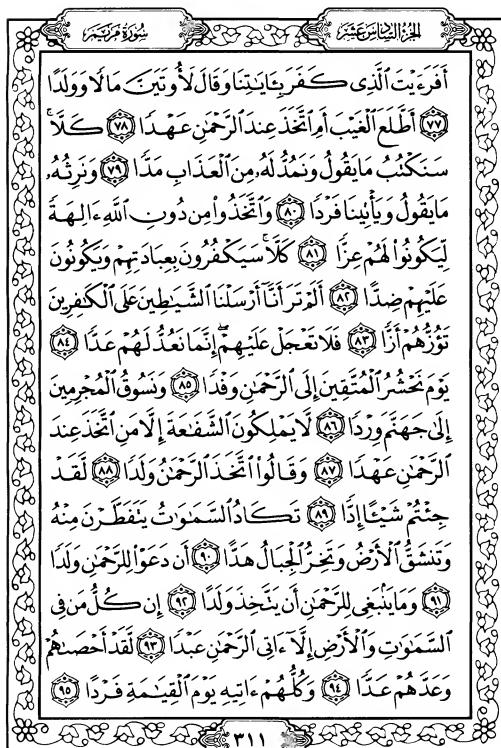 سُورَةُ مَرْيَمَ
الجُزْءُ السَّادِسَ عَشَرَ
أَفَرَءَيْتَ ٱلَّذِى كَفَرَ بِـَٔايَٰتِنَا وَقَالَ لَأُوتَيَنَّ مَالًا وَوَلَدًا
٧٧ أَطَّلَعَ ٱلْغَيْبَ أَمِ ٱتَّخَذَ عِندَ ٱلرَّحْمَٰنِ عَهْدًا ٧٨ كَلَّا ۚ
سَنَكْتُبُ مَا يَقُولُ وَنَمُدُّ لَهُۥ مِنَ ٱلْعَذَابِ مَدًّا ٧٩ وَنَرِثُهُۥ
مَا يَقُولُ وَيَأْتِينَا فَرْدًا ٨٠ وَٱتَّخَذُوا۟ مِن دُونِ ٱللَّهِ ءَالِهَةً
لِّيَكُونُوا۟ لَهُمْ عِزًّا ٨١ كَلَّا ۚ سَيَكْفُرُونَ بِعِبَادَتِهِمْ وَيَكُونُونَ
عَلَيْهِمْ ضِدًّا ٨٢ أَلَمْ تَرَ أَنَّآ أَرْسَلْنَا ٱلشَّيَٰطِينَ عَلَى ٱلْكَٰفِرِينَ
تَؤُزُّهُمْ أَزًّا ٨٣ فَلَا تَعْجَلْ عَلَيْهِمْ ۖ إِنَّمَا نَعُدُّ لَهُمْ عَدًّا ٨٤
يَوْمَ نَحْشُرُ ٱلْمُتَّقِينَ إِلَى ٱلرَّحْمَٰنِ وَفْدًا ٨٥ وَنَسُوقُ ٱلْمُجْرِمِينَ
إِلَىٰ جَهَنَّمَ وِرْدًا ٨٦ لَّا يَمْلِكُونَ ٱلشَّفَٰعَةَ إِلَّا مَنِ ٱتَّخَذَ عِندَ
ٱلرَّحْمَٰنِ عَهْدًا ٨٧ وَقَالُوا۟ ٱتَّخَذَ ٱلرَّحْمَٰنُ وَلَدًا ٨٨ لَّقَدْ
جِئْتُمْ شَيْـًٔا إِدًّا ٨٩ تَكَادُ ٱلسَّمَٰوَٰتُ يَتَفَطَّرْنَ مِنْهُ
وَتَنشَقُّ ٱلْأَرْضُ وَتَخِرُّ ٱلْجِبَالُ هَدًّا ٩٠ أَن دَعَوْا۟ لِلرَّحْمَٰنِ وَلَدًا
٩١ وَمَا يَنۢبَغِى لِلرَّحْمَٰنِ أَن يَتَّخِذَ وَلَدًا ٩٢ إِن كُلُّ مَن فِى
ٱلسَّمَٰوَٰتِ وَٱلْأَرْضِ إِلَّآ ءَاتِى ٱلرَّحْمَٰنِ عَبْدًا ٩٣ لَّقَدْ أَحْصَىٰهُمْ
وَعَدَّهُمْ عَدًّا ٩٤ وَكُلُّهُمْ ءَاتِيهِ يَوْمَ ٱلْقِيَٰمَةِ فَرْدًا ٩٥
٣١١